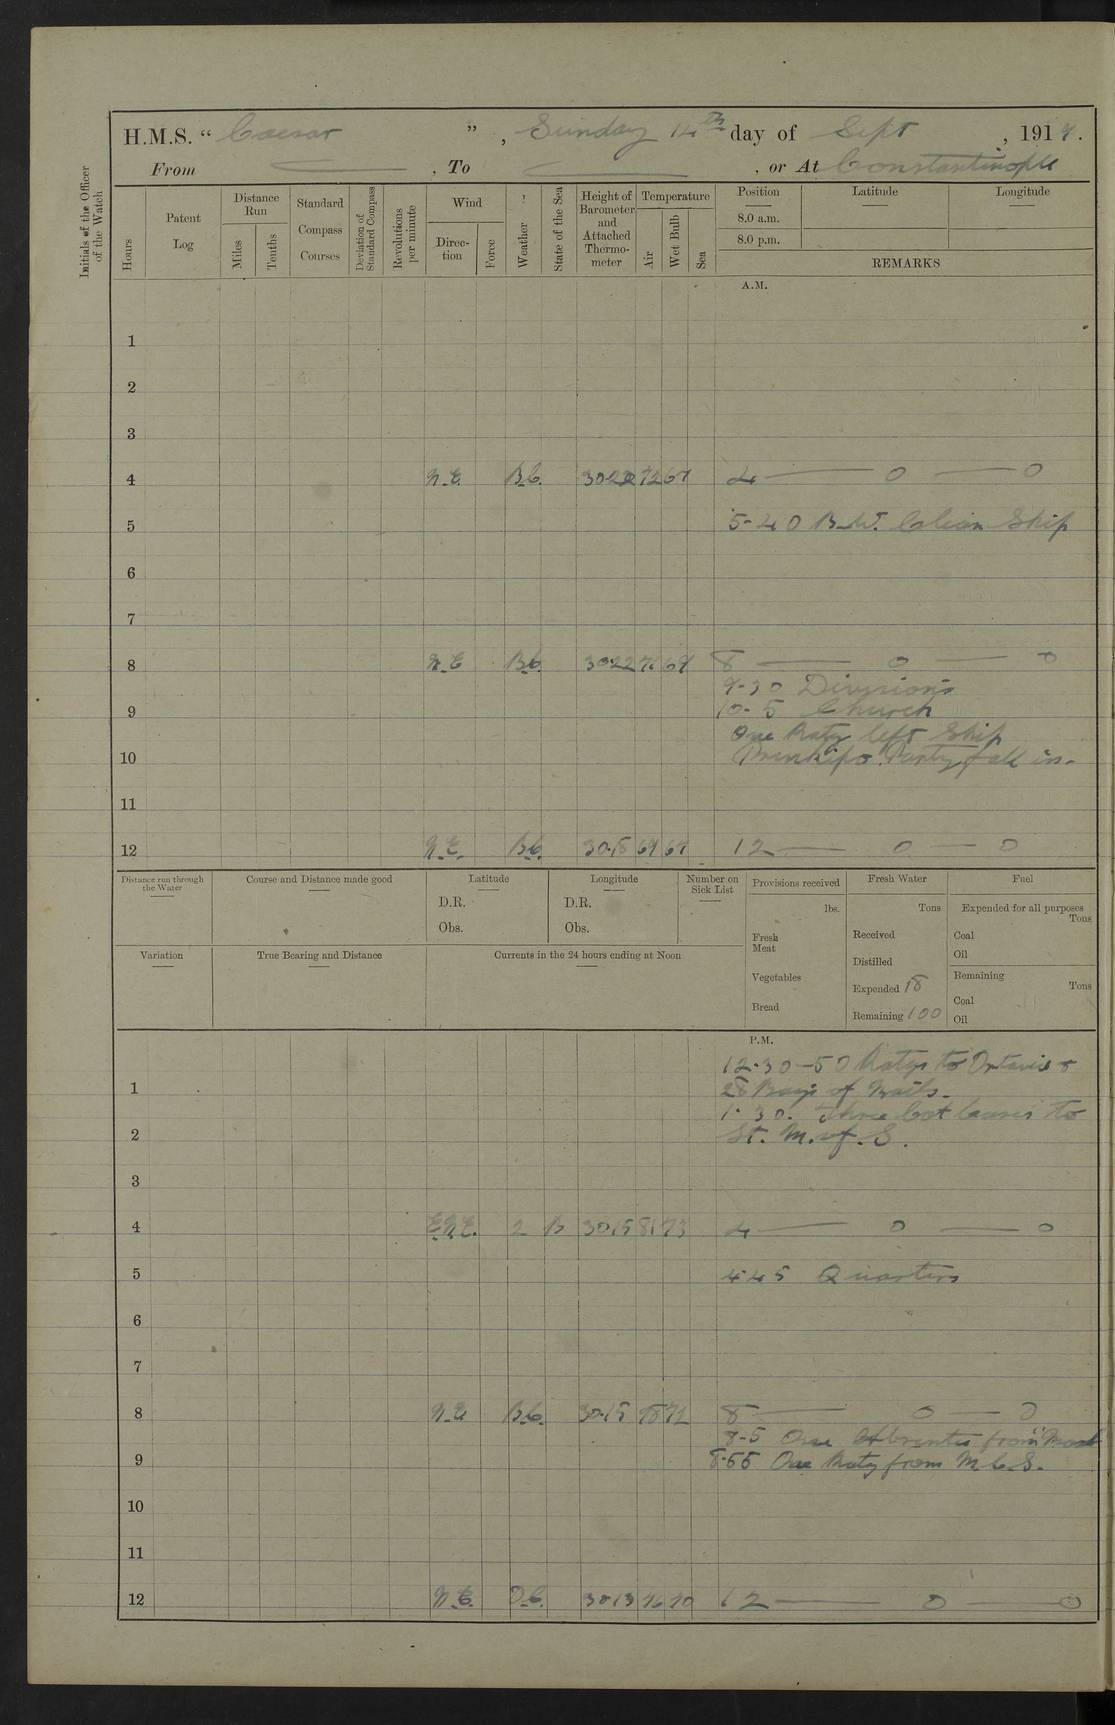 H.M.S. “ Caesar ”, Sunday 14th day of Sept, 1919.
From — , To — , or At Constantinople
Initials of the Officer of the Watch
Hours
Patent Log
Distance Run
Miles
Tenths
Standard Compass Courses
Deviation of Standard Compass
Revolutions per minute
Wind
Direc-tion
Force
Weather
State of the Sea
Height of Barometer and Attached Thermo-meter
Temperature
Air
Wet Bulb
Sea
Position
Latitude
Longitude
8.0 a.m.
8.0 p.m.
REMARKS
A.M.
1
2
3
4 N.E. B.C. 30.22 72 67 4 — 0 — 0
5 5-40 B.W. Clean Ship
6
7
8 N.E. B.C. 30.22 71 67 8 — 0 — 0
9-30 Divisions
9 10-5 Church
One Raty left Ship
10 Prinkipo Party fall in.
11
12 N.E. B.C. 30.18 69 67 12 — 0 — 0
Distance run through the Water
Course and Distance made good
Latitude
D.R.
Obs.
Longitude
D.R.
Obs.
Number on Sick List
Provisions received
lbs.
Fresh Meat
Vegetables
Bread
Fresh Water
Tons
Received
Distilled
Expended 18
Remaining 100
Fuel
Expended for all purposes
Tons
Coal
Oil
Remaining
Tons
Coal
Oil
Variation
True Bearing and Distance
Currents in the 24 hours ending at Noon
P.M.
12-30-50 Ratgs to &
1 28 Bags of Mails.
1.30. leaves to
2 St. M. of S.
3
4 E.N.E. 2 B 30.15 81 73 4 — 0 — 0
5 4.45 Quarters
6
7
8 N.E. B.C. 30.15 78 72 8 — 0 — 0
8-5 One from
9 8.55 One Raty from
10
11
12 N.E. B.C. 30.13 76 70 12 — 0 — 0